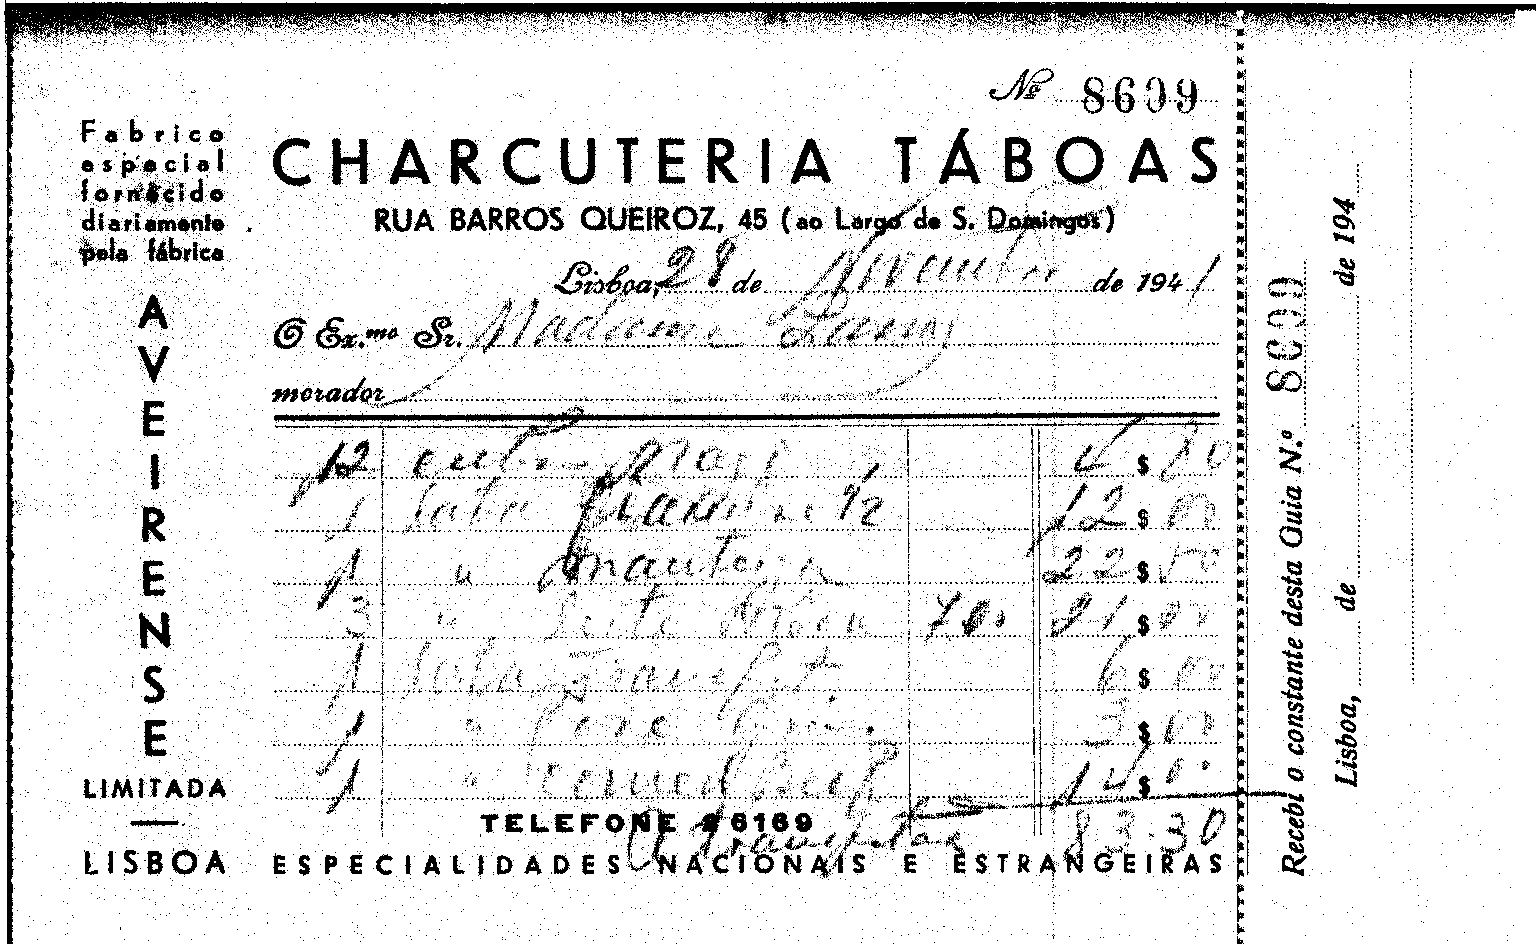 Nº 8609
Fabrico
especial
fornecido
diariamente
pela fábrica
AVEIRENSE
LIMITADA
LISBOA
CHARCUTERIA TÁBOAS
RUA BARROS QUEIROZ, 45 (ao Largo de S. Domingos)
Lisboa, 28 de Novembro de 1941
O Ex.mo Sr. Madame
morador
12 4$80
1 lata 1/2 12$00
1 " manteiga 22$50
3 " 7.00 21$00
1 lata 6$00
1 " 3$00
1 " Corned Beef 14$00
A transportar 83.30
TELEFONE 26169
ESPECIALIDADES NACIONAIS E ESTRANGEIRAS
Recebi o constante desta Guia N.º
Lisboa, de de 194